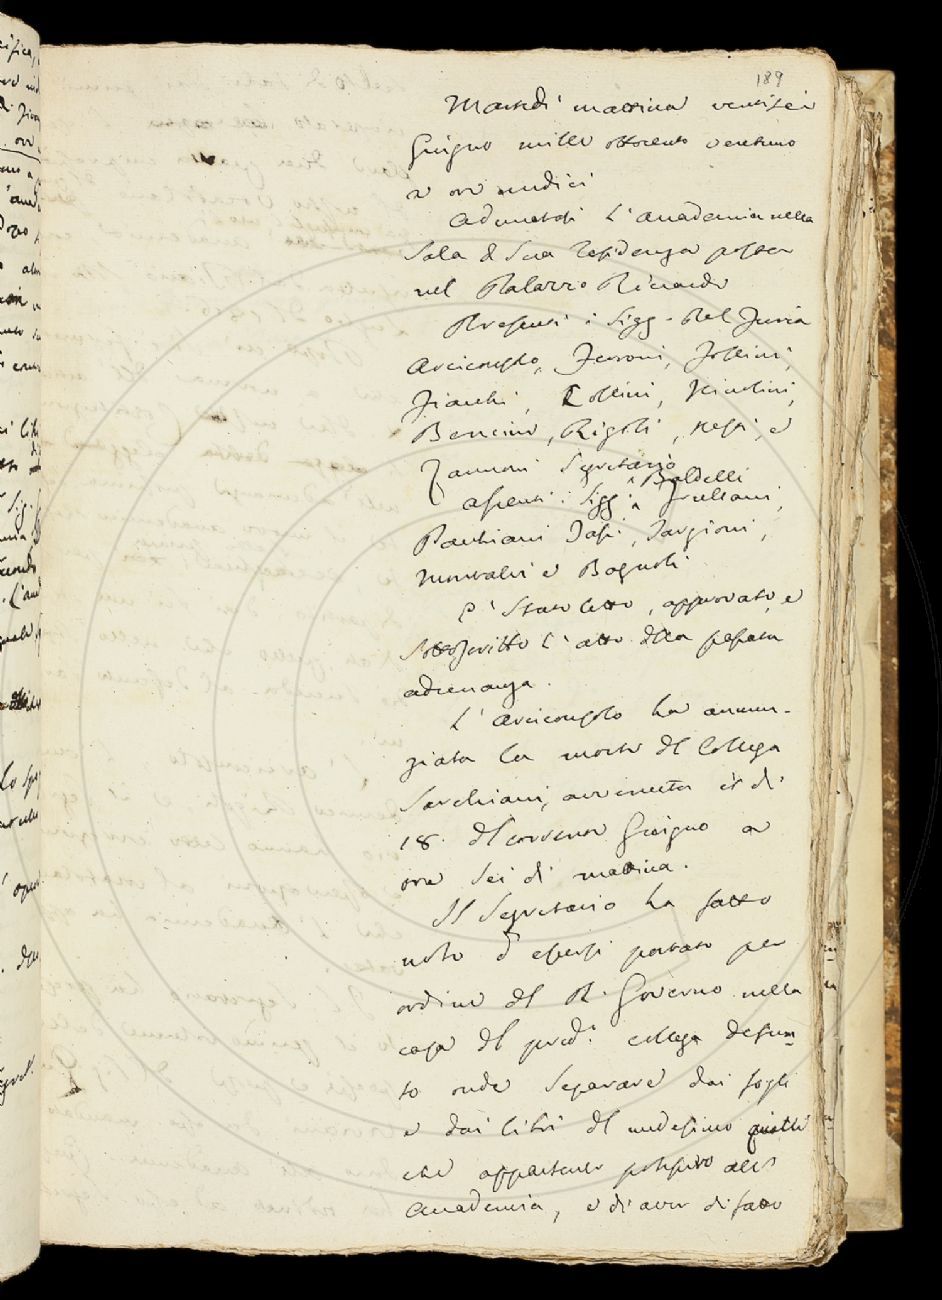 189
Martedì mattina ventisei
Giugno mille ottocento ventuno
a ore undici
Adunatasi l'Accademia nella
Sala di Sua Residenza posta
nel Palazzo Riccardi
Presenti i Sigg. Del Furia
Arciconsolo, Ferroni, Follini,
Fiacchi, Collini, Niccolini,
Bencini, Rigoli, Nesti, e
Zannoni Segretario
Baldelli
assenti i Sigg. Frullani,
Pacchiani Tassi, Targioni,
Montalvi e Bagnoli
È stato letto, approvato, e
sottoscritto l'atto della passata
adunanza.
L'Arciconsolo ha annun-
ziata la morte del Collega
Sarchiani, avvenuta il dì
18. del corrente Giugno a
ore sei di mattina.
Il Segretario ha fatto
noto d'essersi portato per
ordine del R. Governo nella
casa del pred. collega defun-
to onde separare dai fogli
e dai libri del medesimo quelli
che appartener potessero all'
Accademia, e di aver difatto